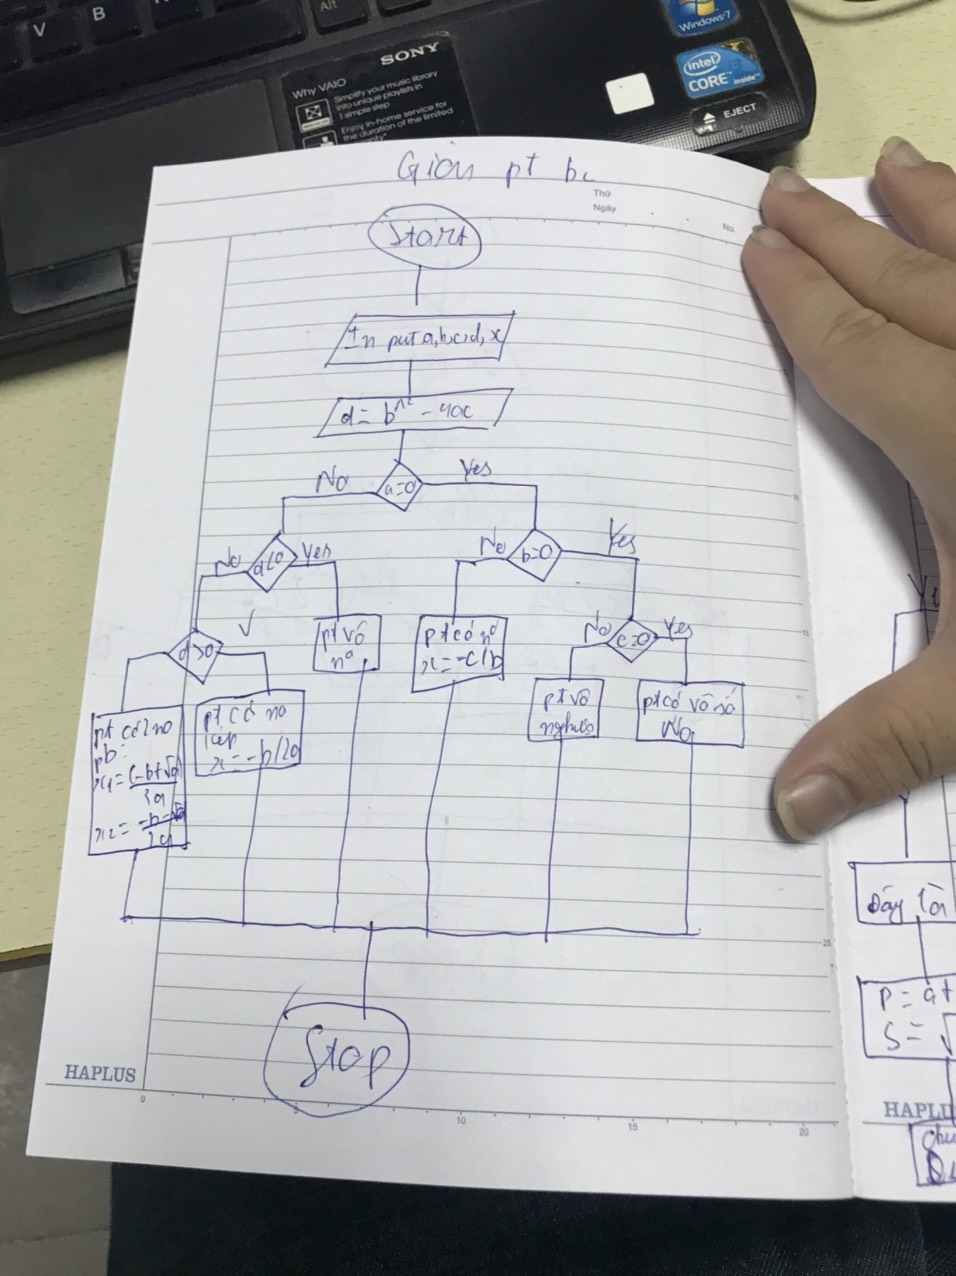 V
B
Alt
SONY
Why VAIO
Simplify your music library
into unique playlists in
1 simple step
Enjoy in-home service for
the duration of the limited
Windows 7
intel
CORE i3
inside™
EJECT
pt
Thứ
Ngày
No.
Start
In put a,b,c,d,x
d = b^2 - 4ac
No
a=0
Yes
No
d<0
Yes
No
b=0
Yes
d>0
pt vô
no
pt có no
x = -c/b
No
c=0
Yes
pt có 2 no
pb:
x1 = (-b+√d)
2a
x2 = -b-√d
2a
pt có no
kép
x = -b/2a
pt vô
nghiệm
pt có vô số
No
Đây là
P = a+
S = √
Stop
HAPLUS
0
5
10
15
20
25
HAPLU